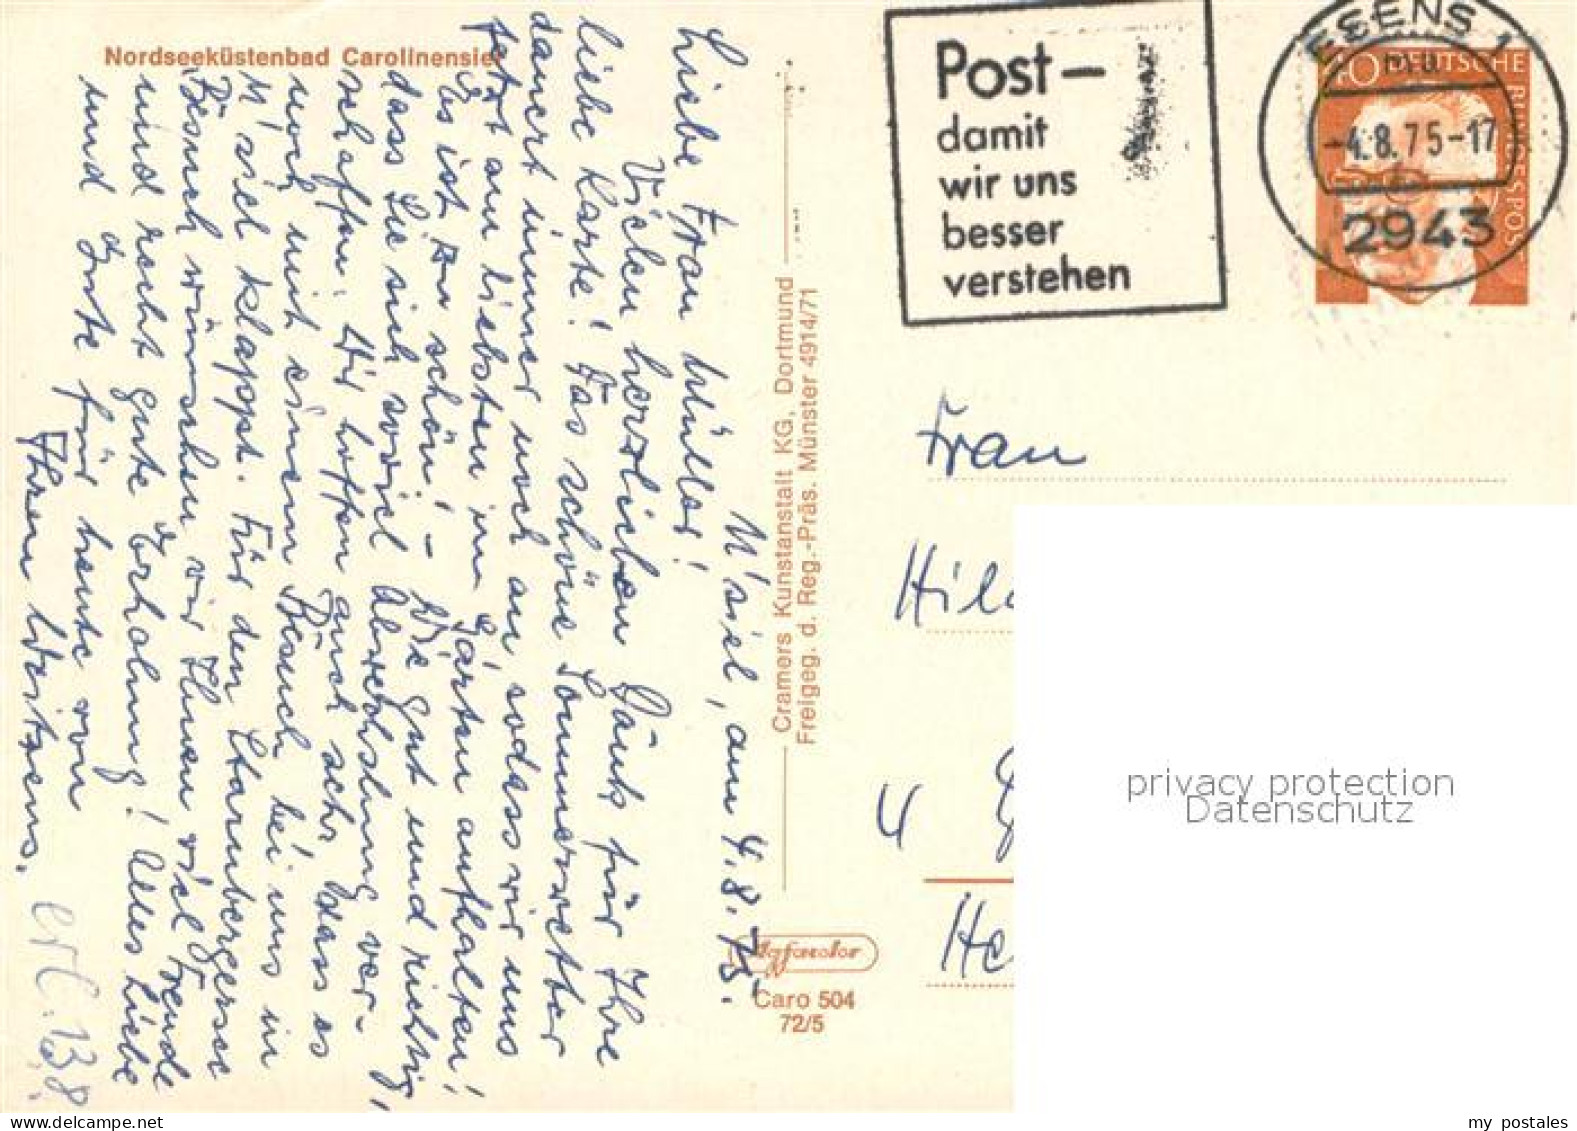 Nordseeküstenbad Carolinensiel
N'siel, am 4.8.75.
Liebe Frau Müller!
Vielen herzlichen Dank für Ihre
liebe Karte! Das schöne Sommerwetter
dauert immer noch an, sodass wir uns
jetzt am liebsten im Garten aufhalten!
Es ist zu schön! – Wie gut und richtig,
dass Sie sich soviel Abwechslung ver-
schaffen. Wir hoffen auch sehr, dass es
noch mit einem Besuch bei uns in
N'siel klappt. Für den Starnbergersee
Besuch wünschen wir Ihnen viel Freude
und recht gute Erholung! Alles Liebe
und Gute für heute von
Ihren Weitzens.
erl. 13.8.
Cramers Kunstanstalt KG, Dortmund
Freigeg. d. Reg.-Präs. Münster 4914/71
Agfacolor
Caro 504
72/5
Post –
damit
wir uns
besser
verstehen
ESENS 1
mu
-4.8.75-17
2943
40 DEUTSCHE
BUNDESPOST
Frau
Hild
4 D
He
privacy protection
Datenschutz
my postales